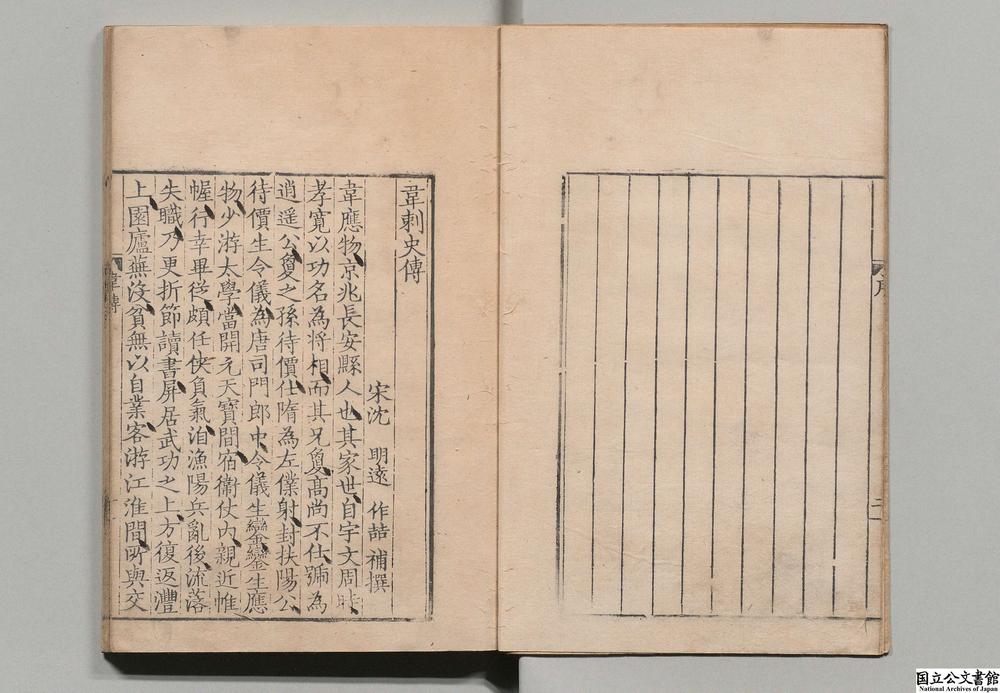 韋刺史傳
宋沈　明遠　作喆　補撰
韋應物京兆長安縣人也其家世自宇文周時
孝寬以功名為將相而其兄敻高尚不仕號為
逍遥公敻之孫待價仕隋為左僕射封扶陽公
待價生令儀為唐司門郎中令儀生鑾鑾生應
物少游太學當開元天寶間宿衞仗内親近帷
幄行幸畢從頗任俠負氣洎漁陽兵亂後流落
失職乃更折節讀書屏居武功之上方復返灃
上園廬蕪没貧無以自業客游江淮間所與交
韋傳
一
序
二
国立公文書館
National Archives of Japan